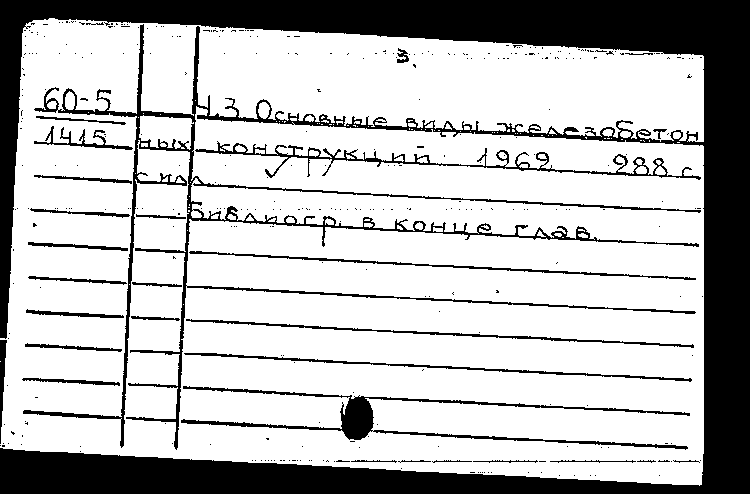 3.
60-5
Ч.3 Основные виды железобетон
1415
ных конструкций 1969 288 с
с илл.
Библиогр. в конце глав.